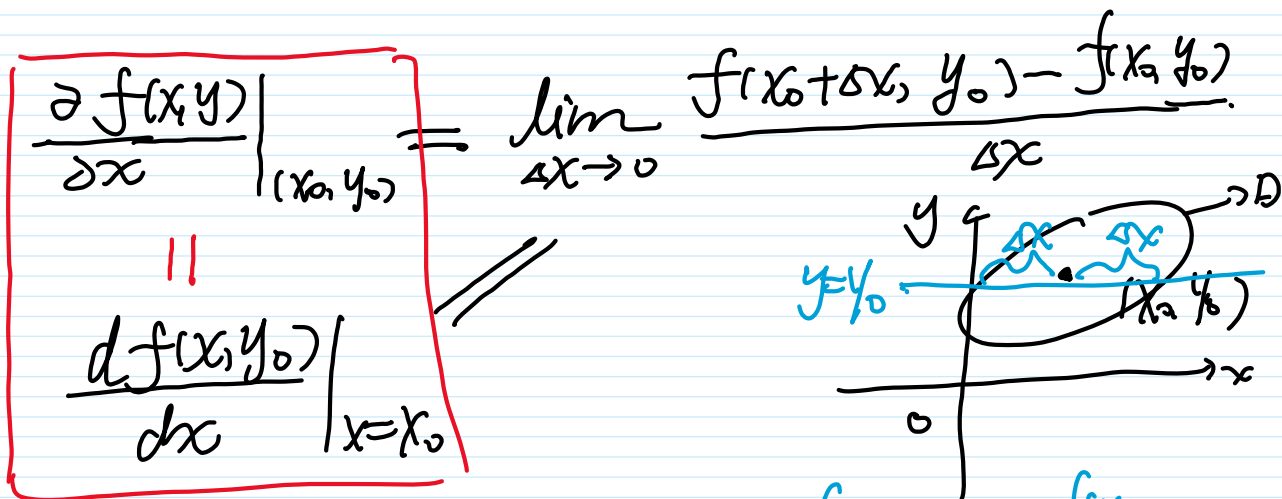 ∂f(x,y)/∂x |(x₀,y₀) = lim Δx→0 f(x₀+Δx, y₀) − f(x₀,y₀) / Δx
=
//
df(x,y₀)/dx |x=x₀
y
D
Δx Δx
y=y₀
(x₀,y₀)
x
0